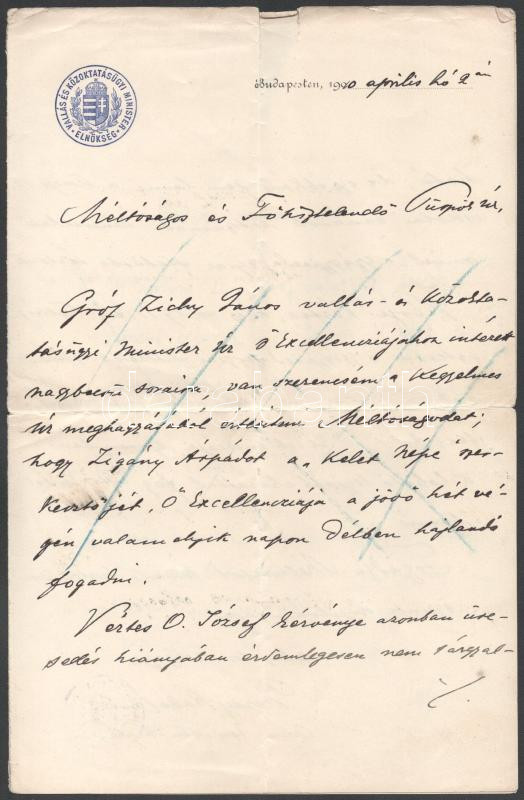 VALLÁS ÉS KÖZOKTATÁSÜGYI MINISTER
ELNÖKSÉG
Budapesten, 1910 április hó 9-én
Méltóságos és Főtisztelendő Püspök úr,
Gróf Zichy János vallás- és Közokta-
tásügyi Minister úr Ő Excellenciájához intézett
nagybecsű soraira, van szerencsém a Kegyelmes
úr meghagyásából értesíteni Méltóságodat,
hogy Zigány Árpádot a „Kelet Népe" szer-
kesztőjét, Ő Excellenciája a jövő hét vé-
gén valamelyik napon délben hajlandó
fogadni.
Vértes O. József kérvénye azonban üre-
sedés hiányában érdemlegesen nem tárgyal-
./.